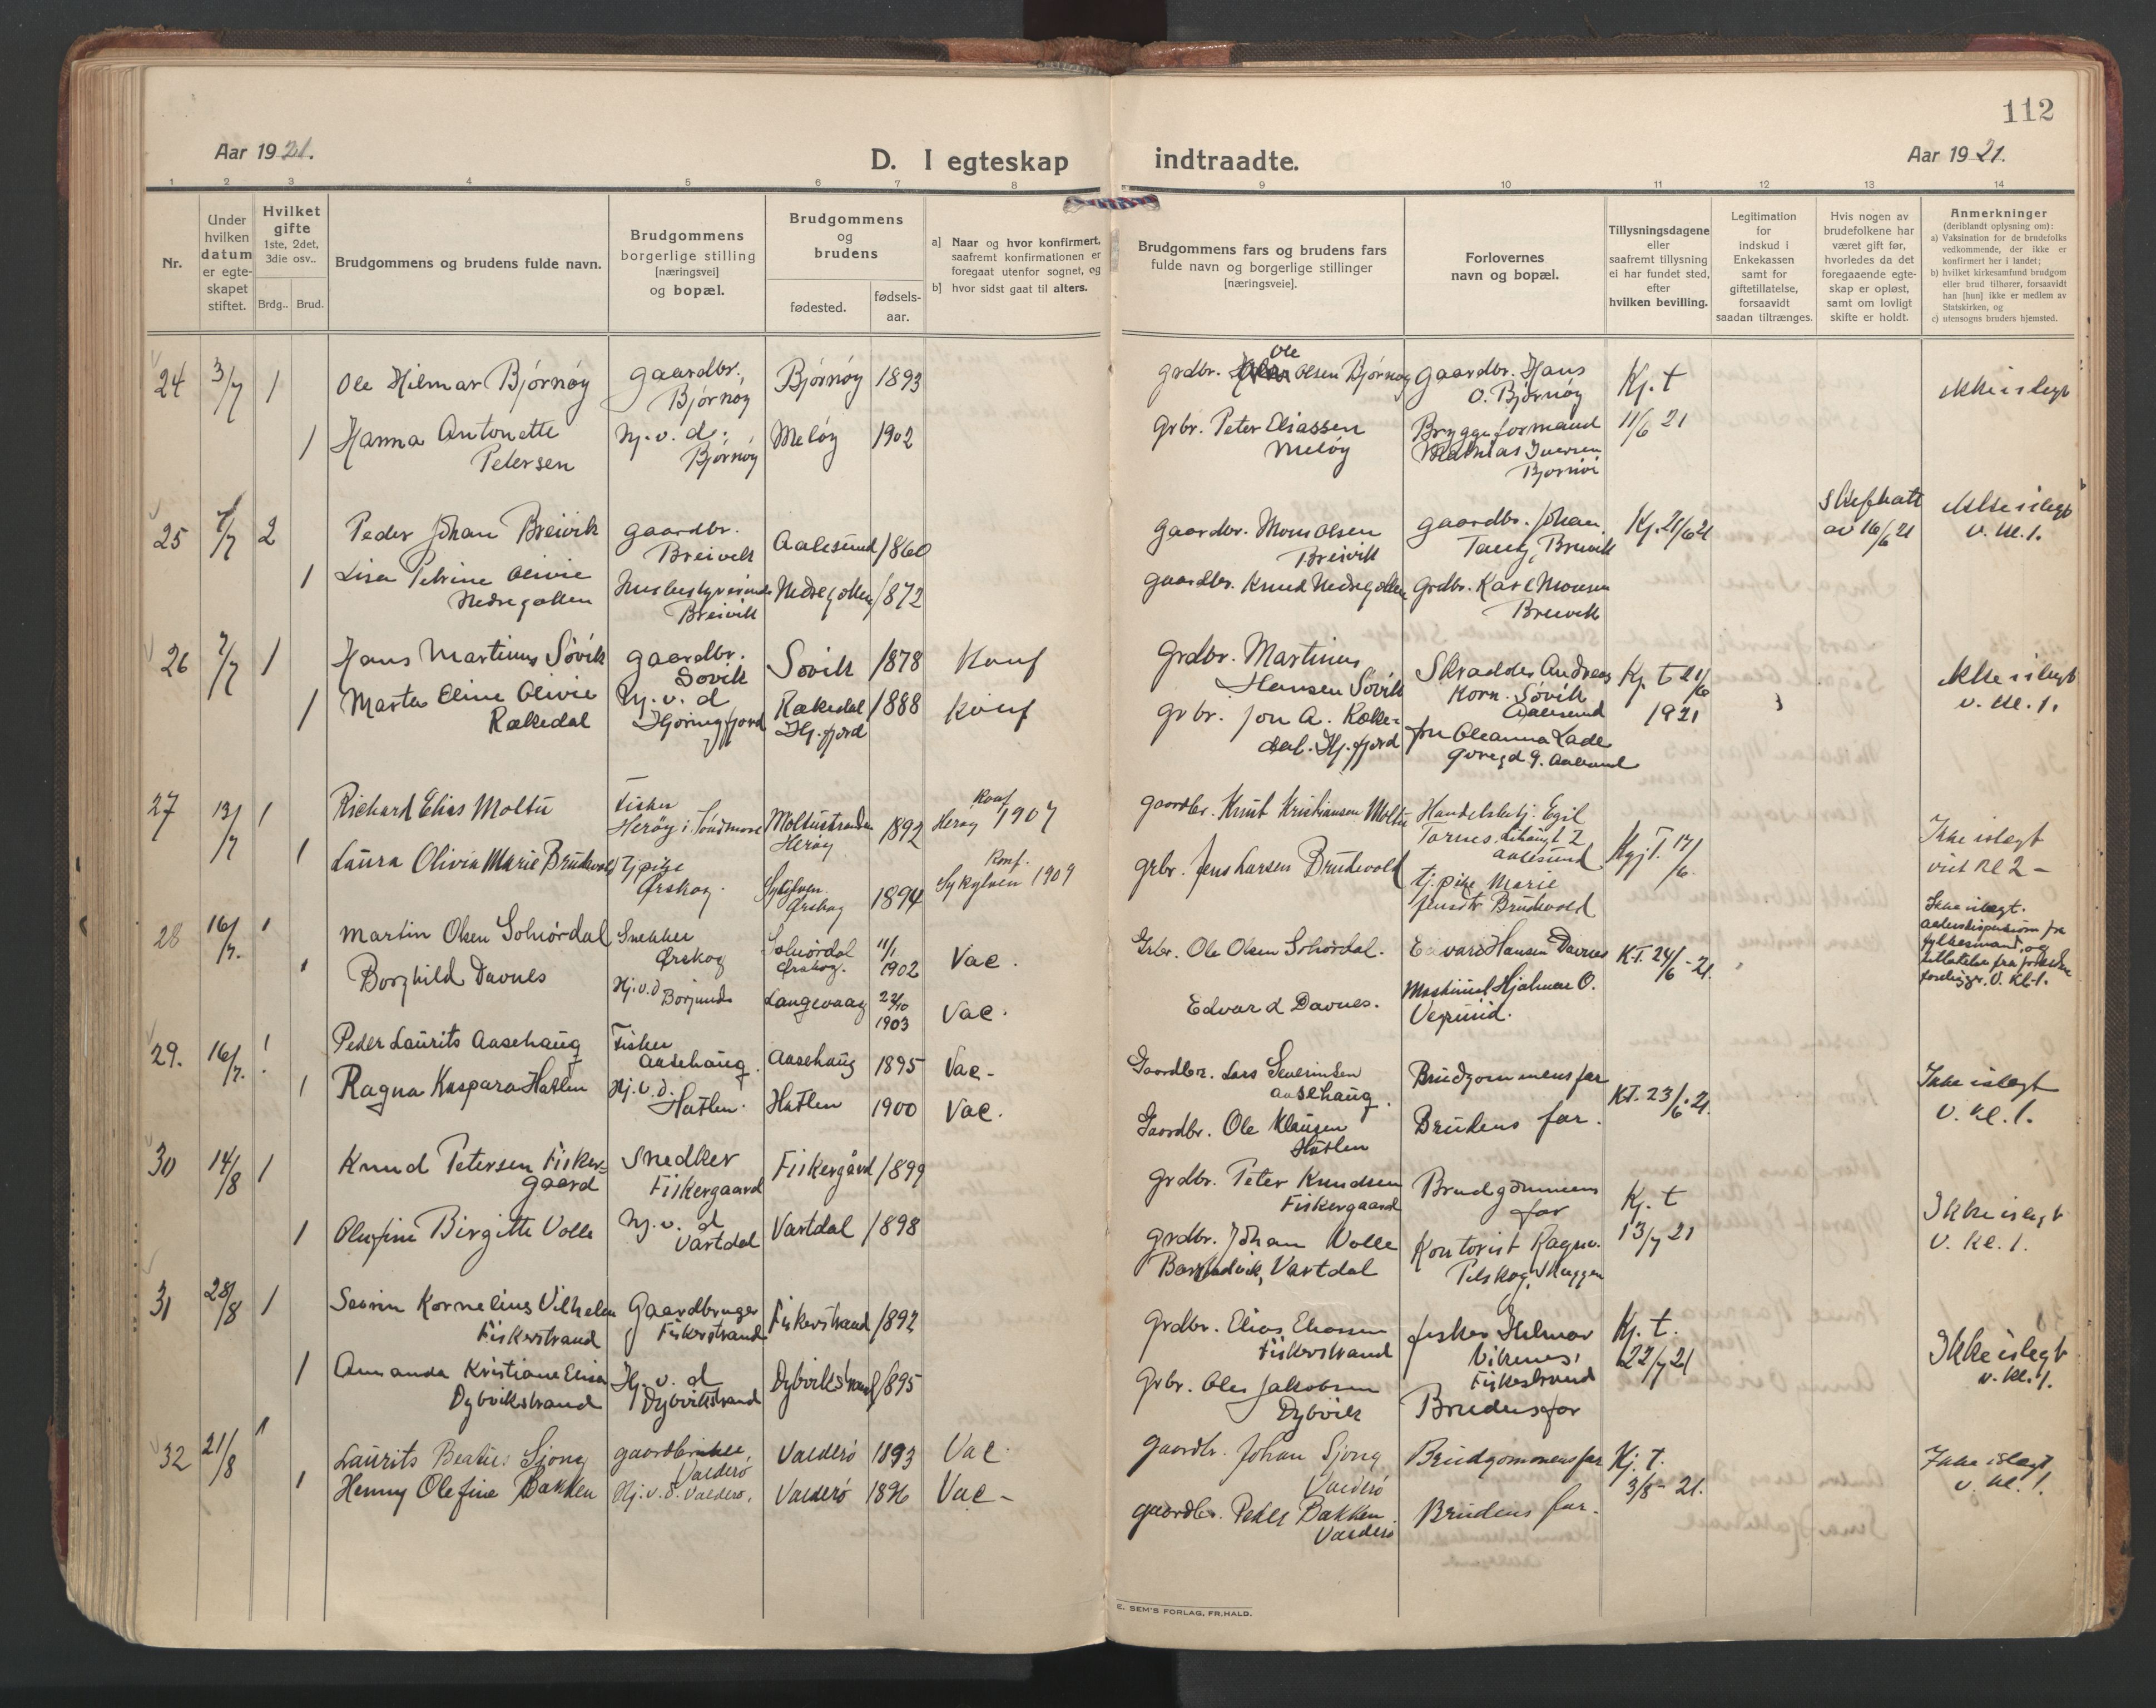 112
Aar 1921.
D. I egteskap
indtraadte.
Aar 1921.
1 2 3 4 5 6 7 8 9 10 11 12 13 14
Nr.
Under
hvilken
datum
er egte-
skapet
stiftet.
Hvilket
gifte
1ste, 2det,
3die osv..
Brdg..
Brud.
Brudgommens og brudens fulde navn.
Brudgommens
borgerlige stilling
[næringsvei]
og bopæl.
Brudgommens
og
brudens
fødested.
fødsels-
aar.
a] Naar og hvor konfirmert,
saafremt konfirmationen er
foregaat utenfor sognet, og
b] hvor sidst gaat til alters.
Brudgommens fars og brudens fars
fulde navn og borgerlige stillinger
[næringsveie].
Forlovernes
navn og bopæl.
Tillysningsdagene
eller
saafremt tillysning
ei har fundet sted,
efter
hvilken bevilling.
Legitimation
for
indskud i
Enkekassen
samt for
giftetillatelse,
forsaavidt
saadan tiltrænges.
Hvis nogen av
brudefolkene har
været gift før,
hvorledes da det
foregaaende egte-
skap er opløst,
samt om lovligt
skifte er holdt.
Anmerkninger
(deriblandt oplysning om):
a) Vaksination for de brudefolks
vedkommende, der ikke er
konfirmert her i landet;
b) hvilket kirkesamfund brudgom
eller brud tilhører, forsaavidt
han [hun] ikke er medlem av
Statskirken, og
c) utensogns bruders hjemsted.
24 3/7 1 Ole Hilmar Bjørnøy gaardbr. Bjørnøy Bjørnøy 1893
grdbr. Ole Olsen Bjørnøy gaardbr. Hans O. Bjørnøy Kj. t ikke i slegt
1 Hanna Antonette Petersen Hj. v. d. Bjørnøy Meløy 1902
grbr. Peter Eliassen Meløy Bryggeformand Mathias Iversen Bjørnøi 11/6 21
25 /7 2 Peder Johan Breivik gaardbr. Breivik Aalesund 1860
gaardbr. Mons Olsen Breivik gaardbr. Johan Tang, Breivik Kj. 21/6 21 av 16/6 21 ikke i slegt v. kl. 1.
1 Lisa Petrine Olivie Nedregotten Husbestyrerinde Breivik Nedregotten 1872
gaardbr. Knud Nedregotten grdbr. Karl Monsen Breivik
26 7/7 1 Hans Martinus Søvik gaardbr. Søvik Søvik 1878 Konf
grdbr. Martinus Hansen Søvik Skrædder Andreas Korn. Søvik Aalesund Kj. t 21/6 1921 ikke i slegt v. kl. 1.
1 Marta Eline Olivie Rækedal Hj. v. d Hjørungfjord Rækedal Hj. fjord 1888 Konf
grbr. Jon A. Rækedal. Hj. fjord fru Oleanna Lade
27 13/7 1 Richard Elias Moltu Fisker Herøy i Søndmøre Moltustranden Herøy 1892 Konf Herøy 1907
gaardbr. Knut Kristiansen Moltu Handelsbetj. Egil Tornes Aalesund Kj. T. 17/6. Ikke i slegt viet kl 2 –
1 Laura Olivia Marie Brudevold Tj pike Ørskog. Sykylven. Ørskog 1894 Konf. Sykylven 1909
grbr. Jens Larsen Brudevold tj. pike Marie Jensdtr Brudevold
28 16/7. 1 Martin Olsen Solnørdal Snekker Ørskog Solnørdal Ørskog. 11/1 1902 Vac.
Grbr. Ole Olsen Solnørdal. Edvard Hansen Davnes K.T. 24/6 – 21. Ikke i slegt. aldersdispensation fra fylkesmand. og tillatelse fra v. kl. 1.
1 Borghild Davnes Hj. v. d Borgund Langevaag 22/10 1903 Vac.
Edvard Davnes. Maskinist Hjalmar O. Vegsund.
29. 16/7. 1 Peder Laurits Aasehaug Fisker Aasehaug. Aasehaug 1895 Vac –
Gaardbr. Lars Severinsen Aasehaug. Brudgommens far K.T. 23/6. 21. Ikke i slegt v. kl. 1.
1 Ragna Kaspara Hatlen Hj. v. d. Hatlen. Hatlen 1900 Vac.
Gaardbr. Ole Klausen Hatlen Brudens far.
30 14/8 1 Knud Petersen Fiskergaard Snedker Fiskergaard Fiskergård 1899
grdbr. Peter Knudsen Fiskergaard Brudgommens far Kj. t 13/7 21 Ikke i slegt v. kl. 1.
1 Olufine Birgitte Volle Hj. v. d Vartdal Vartdal 1898
grdbr. Johan Volle Barstadvik, Vartdal Kontorist Ragnv.
31 28/8 1 Severin Kornelius Vilhelm Fiskerstrand Gaardbruger Fiskerstrand Fiskerstrand 1892
grdbr. Elias Eliassen Fiskerstrand fisker Hilmar Vikenes, Fiskestrand Kj. t. 22/7 21 Ikke i slegt v. kl. 1.
1 Amanda Kristiane Elisa Dybvikstrand Hj. v. d Dybvikstrand Dybvikstrand 1895
grbr. Ole Jakobsen Dybvik Brudens far
32 21/8 1 Laurits Beatus Sjong gaardbruker, Valderø Valderø 1893 Vac.
gaardbr. Johan Sjong Valderø Brudgommens far Kj. t. 3/8 – 21. Ikke i slegt v. kl. 1.
1 Henny Olefine Bakken Hj. v. d. Valderø. Valderø 1896 Vac –
gaardbr. Peder Bakken Valderø Brudens far.
E. SEM'S FORLAG, FR.HALD.